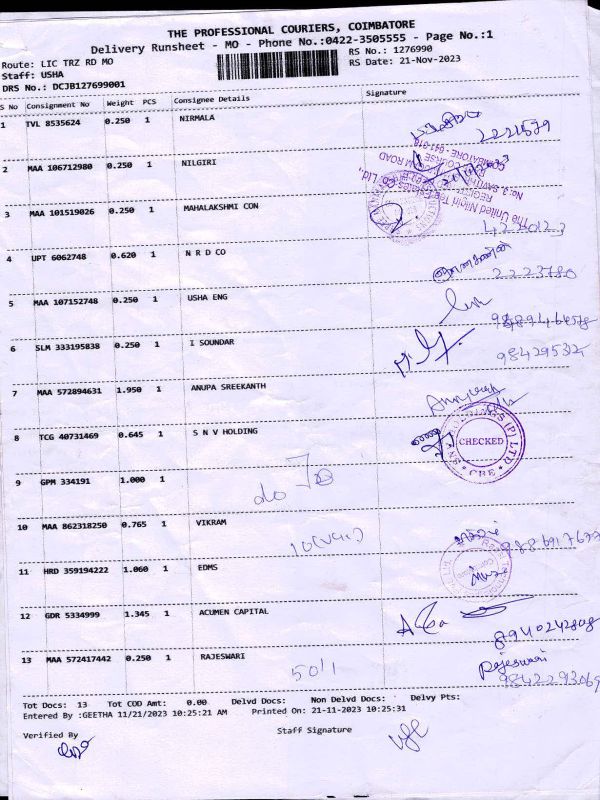 THE PROFESSIONAL COURIERS, COIMBATORE
Delivery Runsheet - MO - Phone No.:0422-3505555 - Page No.:1
Route: LIC TRZ RD MO
RS No.: 1276990
Staff: USHA
RS Date: 21-Nov-2023
DRS No.: DCJB127699001
S No Consignment No Weight PCS Consignee Details Signature
1 TVL 8535624 0.250 1 NIRMALA
2 MAA 106712980 0.250 1 NILGIRI
The United Nilgiri Tea Estates Co Ltd.,
3 MAA 101519026 0.250 1 MAHALAKSHMI CON
4 UPT 6062748 0.620 1 N R D CO
2223780
5 MAA 107152748 0.250 1 USHA ENG
6 SLM 333195838 0.250 1 I SOUNDAR
7 MAA 572894631 1.950 1 ANUPA SREEKANTH
8 TCG 40731469 0.645 1 S N V HOLDING
CHECKED
CBE
9 GPM 334191 1.000 1
do
10 MAA 862318250 0.765 1 VIKRAM
11 HRD 359194222 1.060 1 EDMS
12 GDR 5334999 1.345 1 ACUMEN CAPITAL
8940242808
13 MAA 572417442 0.250 1 RAJESWARI
Rajeswari
9842293069
Tot Docs: 13 Tot COD Amt: 0.00 Delvd Docs: Non Delvd Docs: Delvy Pts:
Entered By :GEETHA 11/21/2023 10:25:21 AM Printed On: 21-11-2023 10:25:31
Verified By Staff Signature